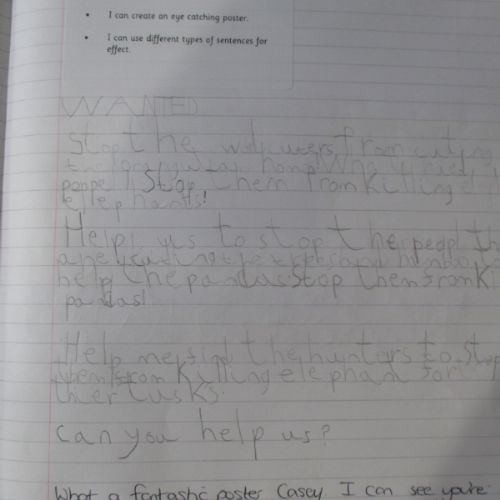 I can create an eye catching poster.
I can use different types of sentences for
effect.
WANTED
Stop the from cuting
the
peopel Stop them from killing
elephants!
Help! us to stop the peopl
are cuting the trees
help the pandas stop them from
pandas!
Help me find the hunters to stop
them from killing elephant for
thier tusks.
Can you help us?
What a fantastic poster Casey. I can see you're